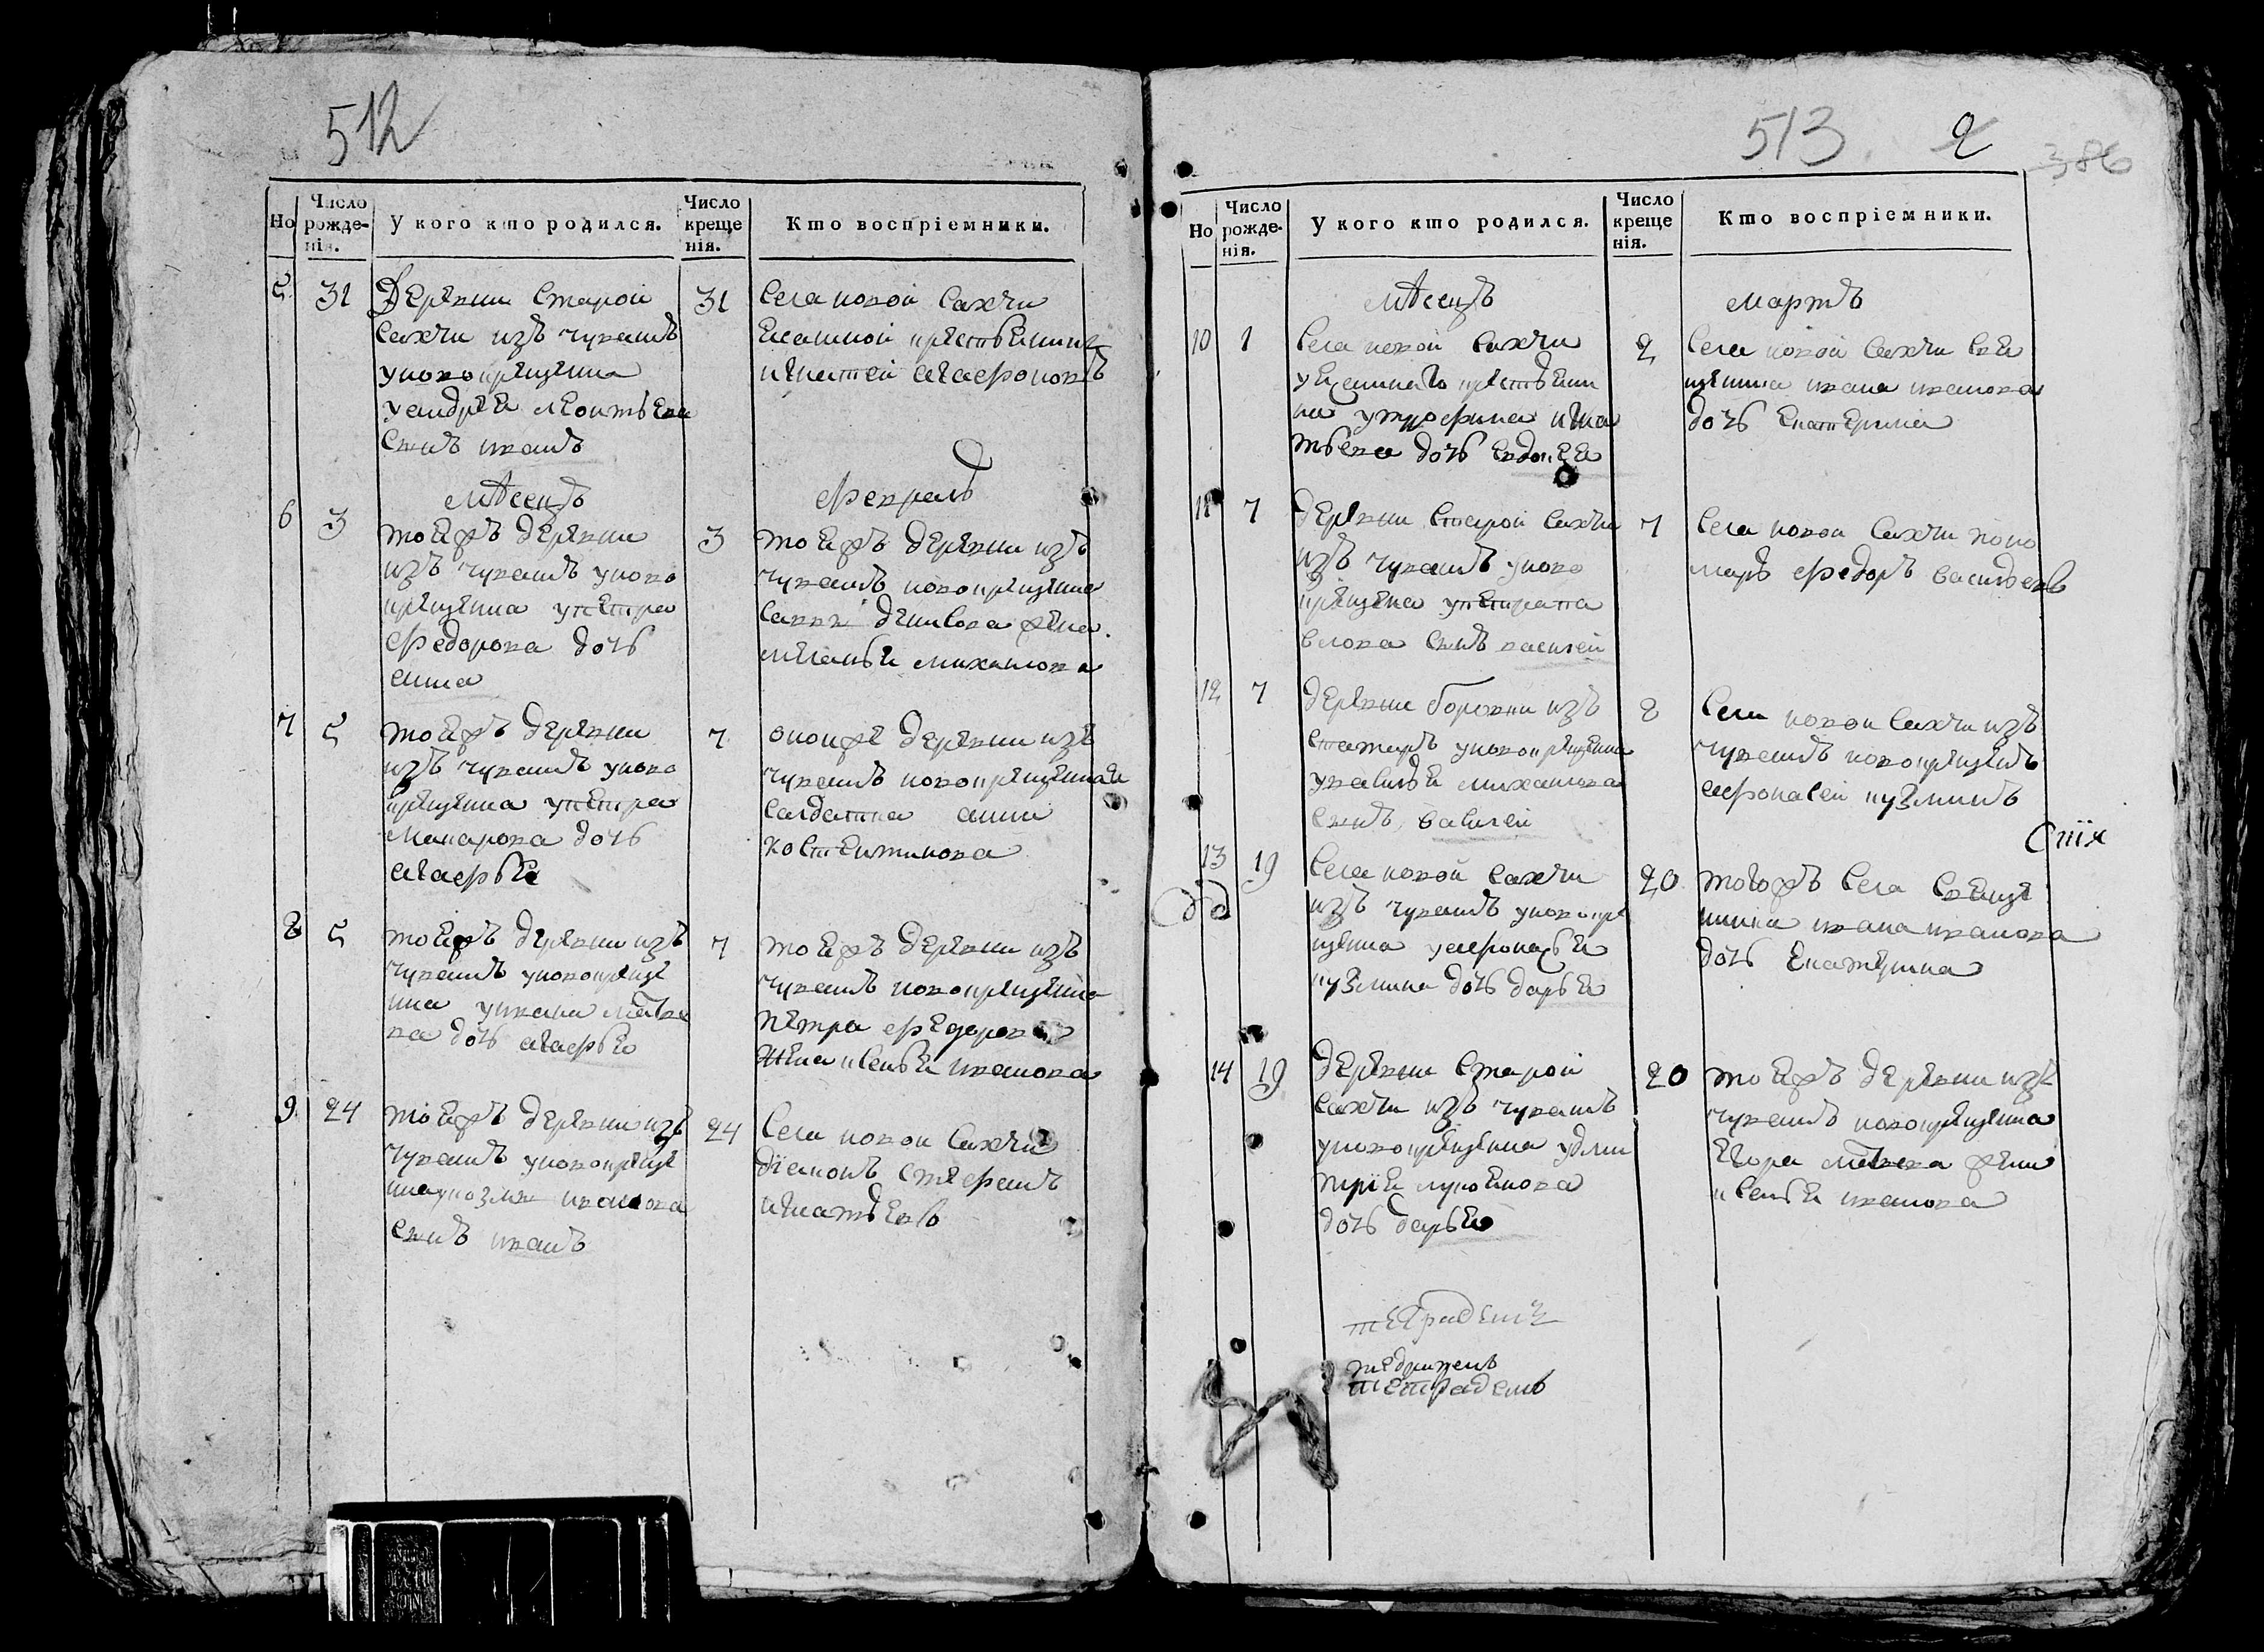 512
Но
Число рожде-нія.
У кого кто родился.
Число креще нія.
Кто воспріемники.
5
31
Деревни Старой
Сахчи изъ чувашъ
уновокрещена
уандрея леонтьева
Сынъ иванъ
31
Села новой Сахчи
ясашной крестьянинъ
игнатей агафоновъ
месецъ
февраль
6
3
тоежъ деревни
изъ чувашъ уново
крещена упетра
федорова дочь
анна
3
тоежъ деревни изъ
чувашъ новокрещена
Саввы денисова жена
меланья михаилова
7
5
тоежъ деревни
изъ чувашъ уново
крещена упетра
макарова дочь
агафья
7
оноиже деревни изъ
чувашъ новокрещеная
Салдатка анна
костентинова
8
5
тоежъ деревни изъ
чувашъ уновокреще
на уивана матве
ва дочь агафья
7
тоежъ деревни изъ
чувашъ новокрещена
петра федорова
жена ксенья иванова
9
24
тоежъ деревни изъ
чувашъ уновокреще
на укозмы иванова
Сынъ иванъ
24
Села новои Сахчи
дїаконъ стефанъ
игнатьевъ
513
2
386
Но
Число рожде-нія.
У кого кто родился.
Число креще нія.
Кто воспріемники.
месецъ
мартъ
10
1
Села новои Сахчи
уясашнаго крестьяни
на утрофима игна
тьева дочь евдокея
2
Села новой Сахчи свя
щенника ивана иванова
дочь Екатерина
11
7
деревни старой Сахчи
изъ чувашъ уново
крещена упетра па
влова Сынъ василей
7
Села новои Сахчи поно
марь федоръ васильевъ
12
7
деревни боровки изъ
татаръ уновокрещена
увасилья михаилова
Сынъ василей
8
Села новои Сахчи изъ
чувашъ новокрещенъ
афонасей кузминъ
13
19
Села новой Сахчи
изъ чувашъ уновокре
щена уафонасья
кузмина дочь дарья
20
тогожъ Села Свяще
нника ивана иванова
дочь Екатерина
14
19
деревни Старой
Сахчи изъ чувашъ
уновокрещена удми
трія лукоянова
дочь дарья
20
тоежъ деревни изъ
чувашъ новокрещена
Егора матвева жена
ксенья иванова